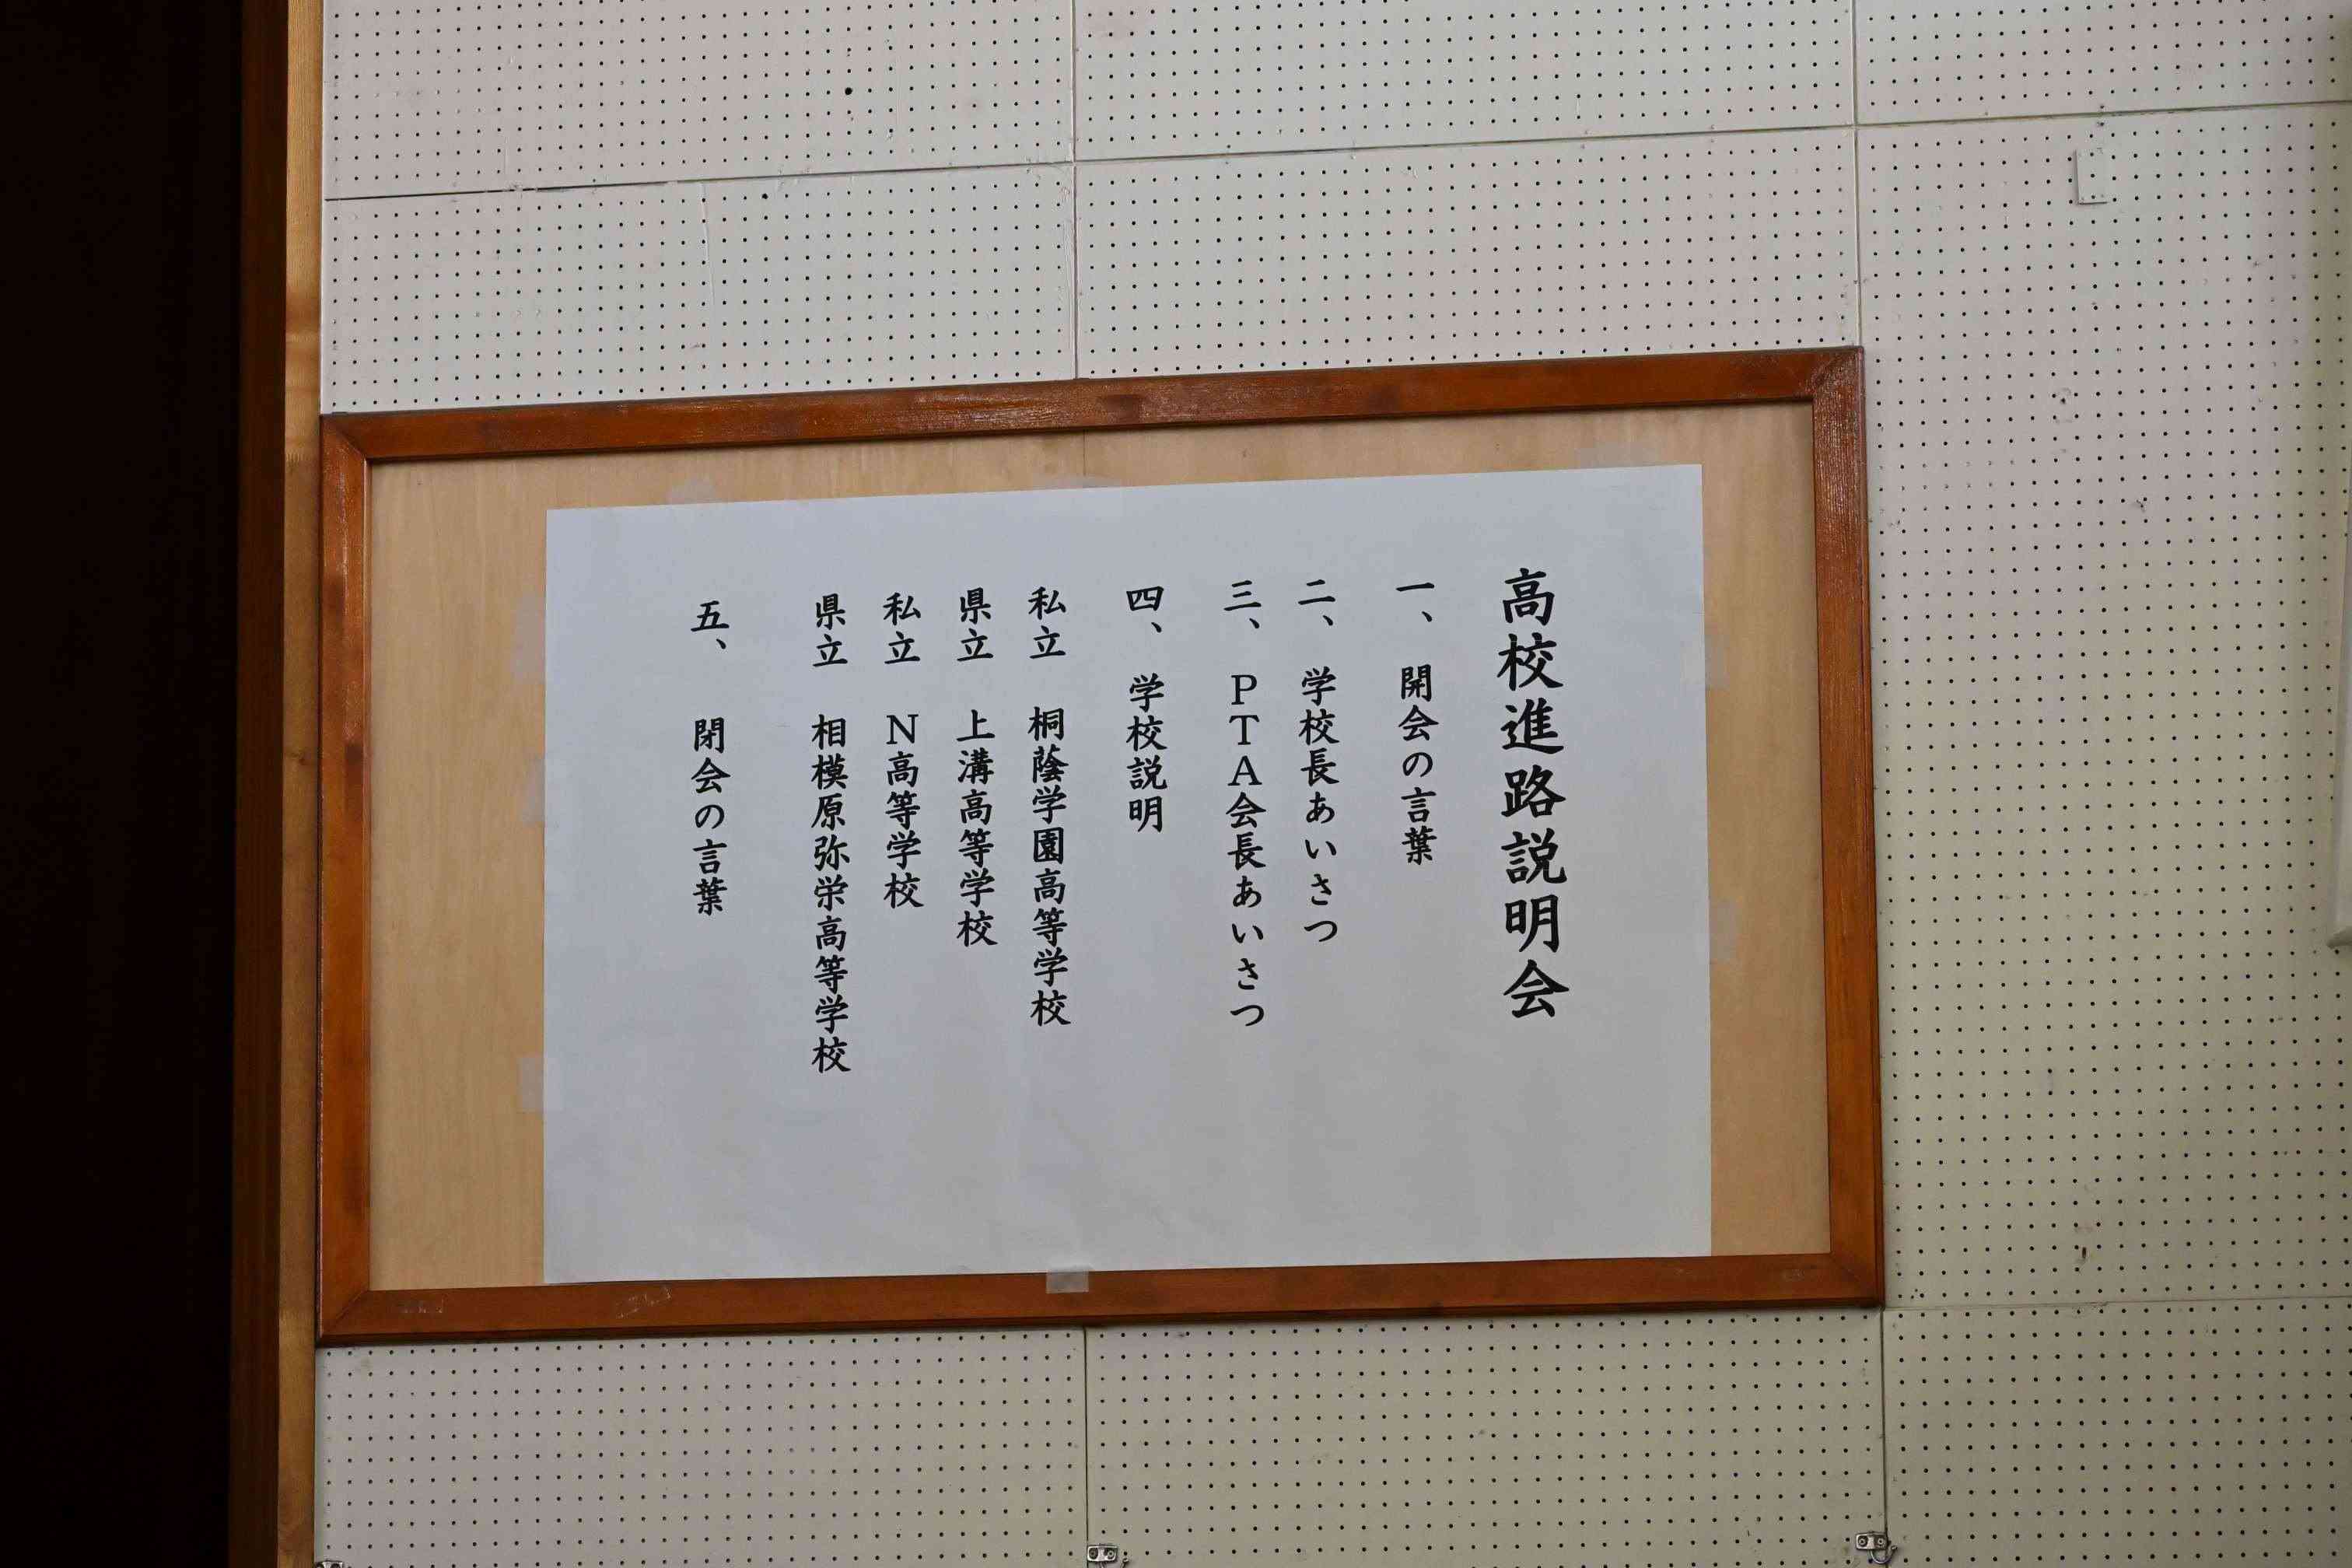 高校進路説明会
一、 開会の言葉
二、 学校長あいさつ
三、 PTA会長あいさつ
四、 学校説明
私立 桐蔭学園高等学校
県立 上溝高等学校
私立 N高等学校
県立 相模原弥栄高等学校
五、 閉会の言葉